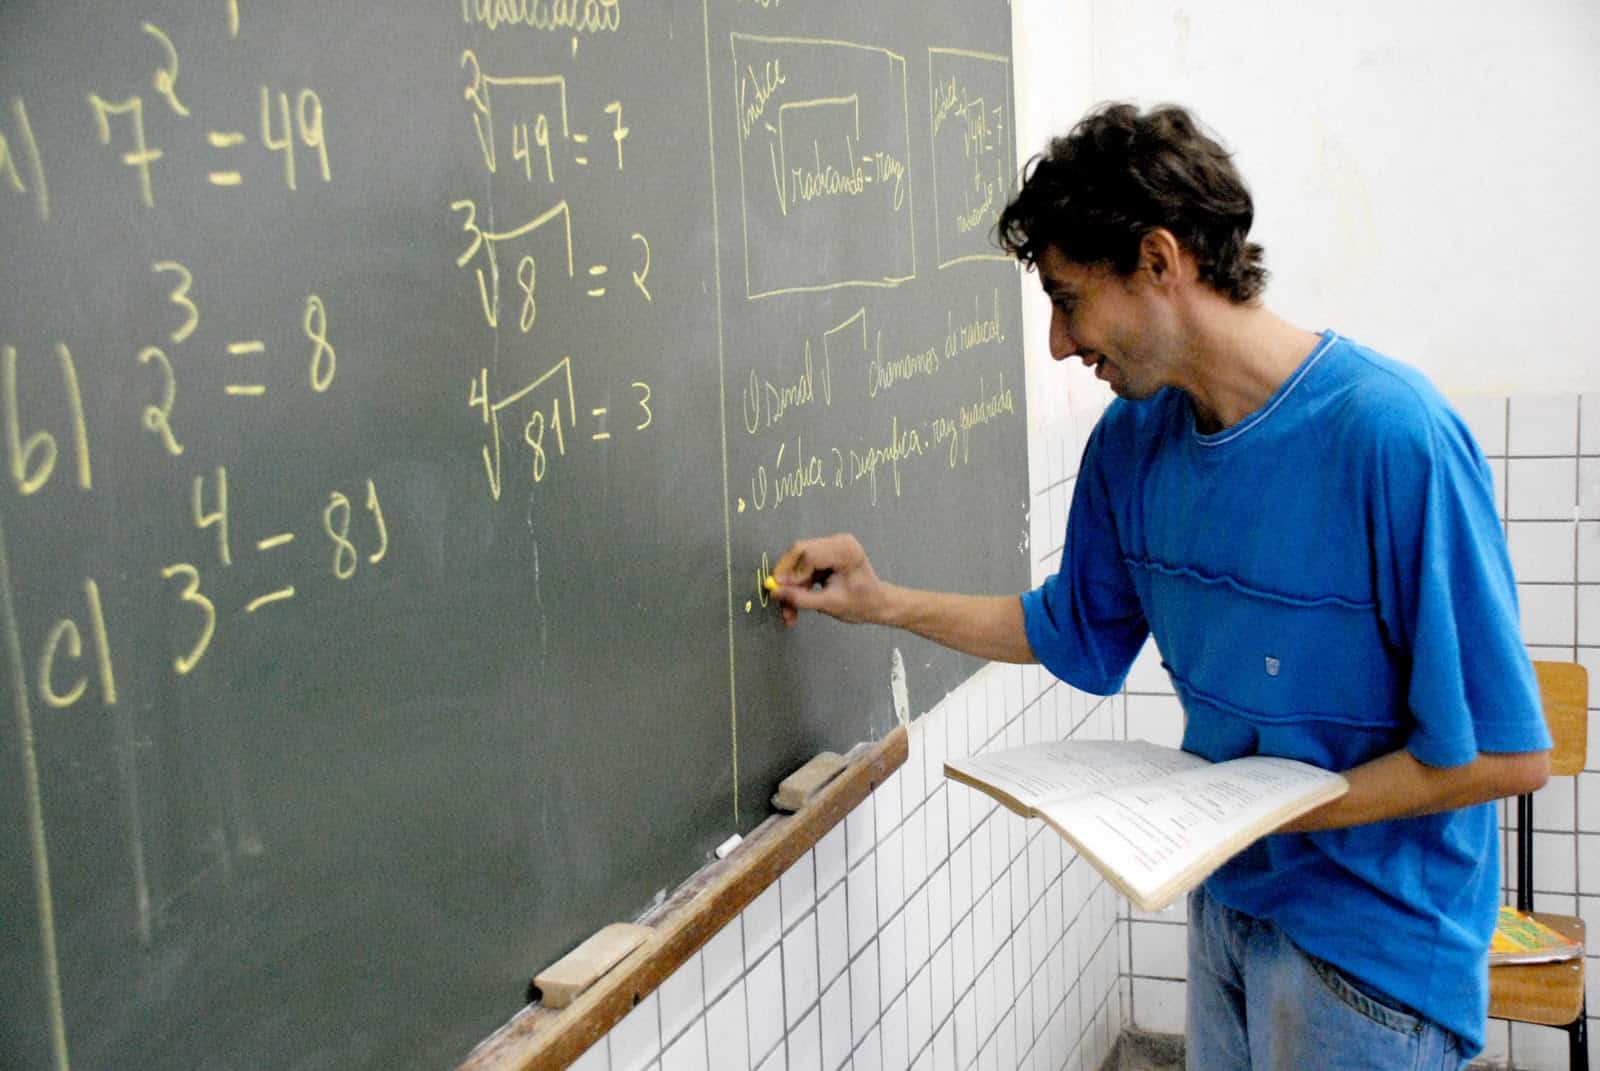 a) 7² = 49
b) 2³ = 8
c) 3⁴ = 81
²√49 = 7
³√8 = 2
⁴√81 = 3
índice
√radicando = raiz
índice ²√49 = 7
radicando
O sinal √ chamamos de radical.
• O índice 2 significa. raiz quadrada
• O